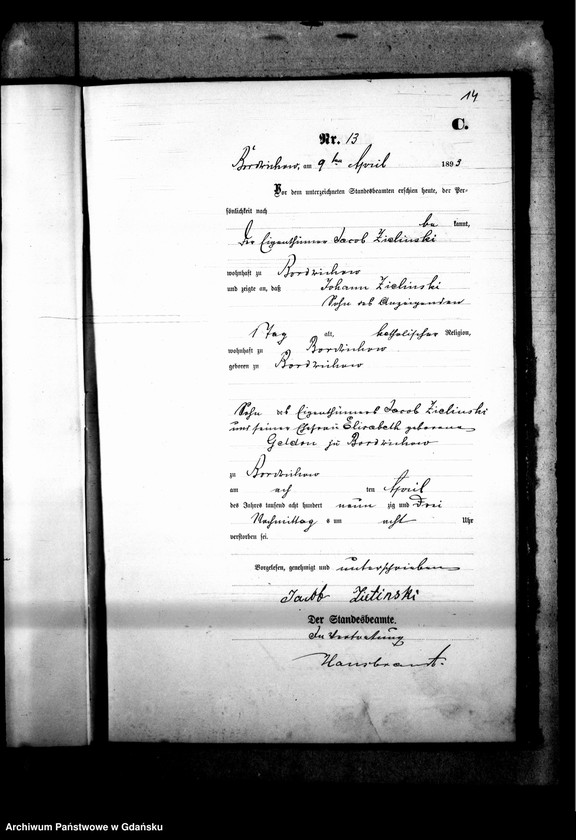 14
C.
Nr. 13
Bordzichow, am 9ten April 1893
Vor dem unterzeichneten Standesbeamten erschien heute, der Per-
sönlichkeit nach
be kannt,
Der Eigenthümer Jacob Zielinski
wohnhaft zu Bordzichow
und zeigte an, daß Johann Zielinski
Sohn des Anzeigenden
1 Tag alt, katholischer Religion,
wohnhaft zu Bordzichow
geboren zu Bordzichow
Sohn des Eigenthümers Jacob Zielinski
und seiner Ehefrau Elisabeth geborene
zu Bordzichow
zu Bordzichow
am ten April
des Jahres tausend acht hundert neun zig und Drei
Nachmittag s um acht Uhr
verstorben sei.
Vorgelesen, genehmigt und unterschrieben
Jacob Zielinski
Der Standesbeamte.
In Vertretung